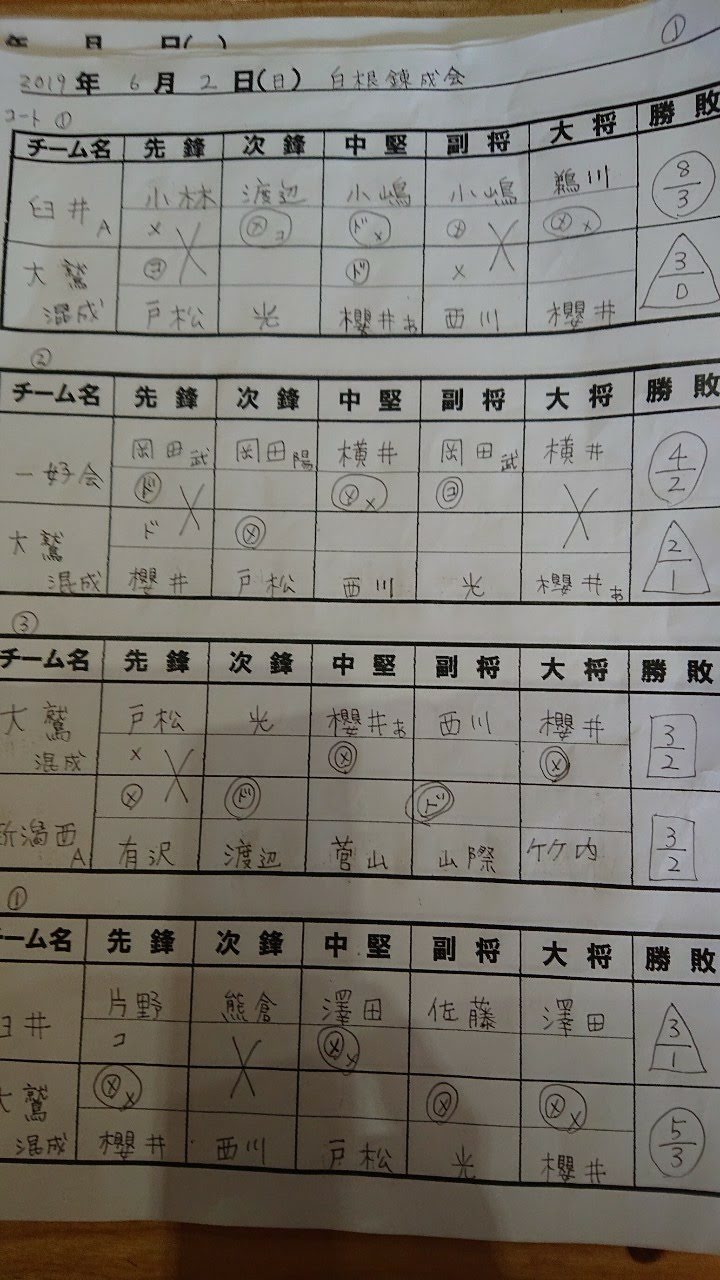 年 月 日( )
①
2019年 6月 2日(日) 白根錬成会
コート①
チーム名 先鋒 次鋒 中堅 副将 大将 勝敗
臼井A 小林 渡辺 小嶋 小嶋 鵜川 8/3
メ メコ ドメ メ メメ
大鷲混成 コ ド メ 3/0
戸松 光 櫻井お 西川 櫻井
②
チーム名 先鋒 次鋒 中堅 副将 大将 勝敗
一好会 岡田武 岡田陽 横井 岡田武 横井 4/2
ド メメ コ
大鷲混成 ド メ 2/1
櫻井 戸松 西川 光 櫻井お
③
チーム名 先鋒 次鋒 中堅 副将 大将 勝敗
大鷲混成 戸松 光 櫻井お 西川 櫻井 3/2
メ メ メ
新潟西A メ ド ド 3/2
有沢 渡辺 菅山 山際 竹内
①
ーム名 先鋒 次鋒 中堅 副将 大将 勝敗
臼井 片野 熊倉 澤田 佐藤 澤田 3/1
コ メメ
大鷲混成 メメ メ メメ 5/3
櫻井 西川 戸松 光 櫻井